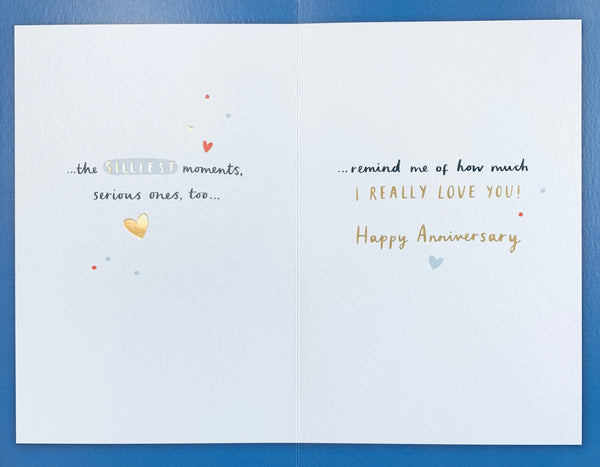 ...the SILLIEST moments,
serious ones, too...
...remind me of how much
I REALLY LOVE YOU!
Happy Anniversary